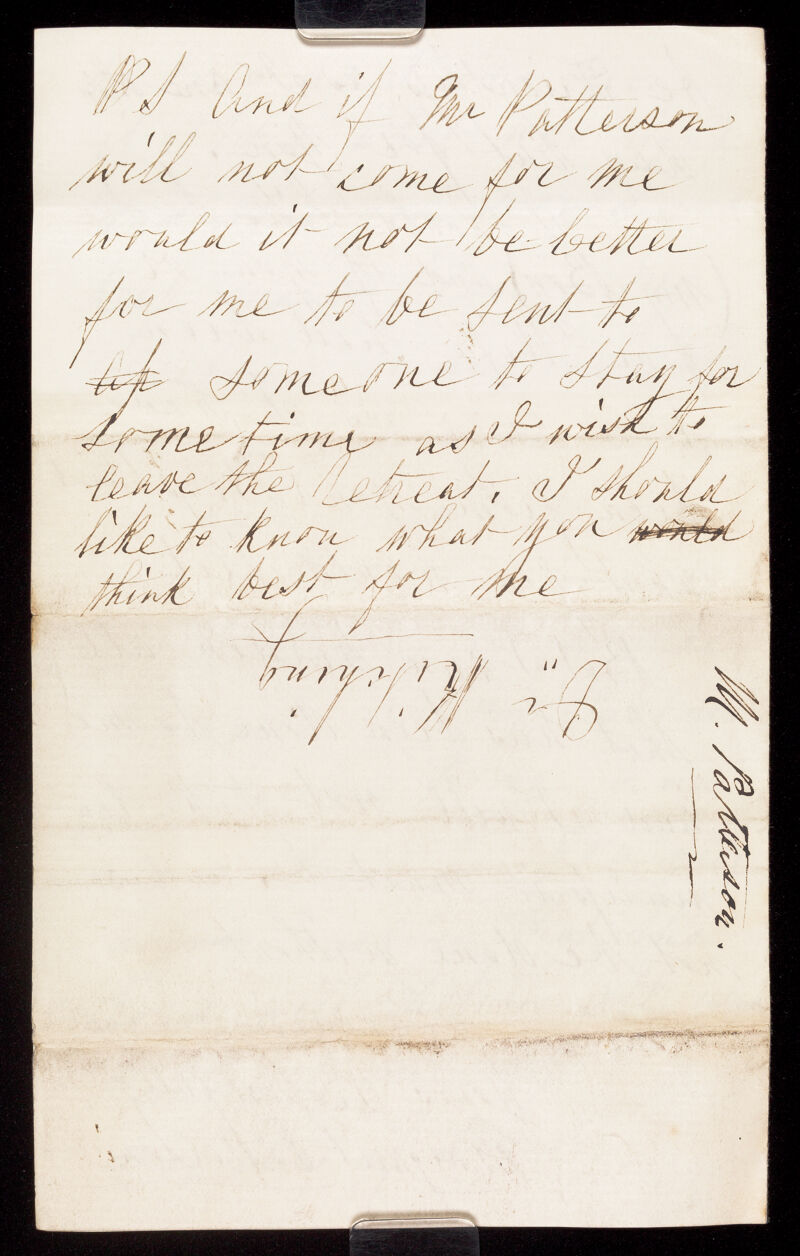 PS And if Mr Patterson
will not come for me
would it not be better
for me to be sent to
someone to stay for
sometime as I wish to
leave the Retreat. I should
like to know what you would
think best for me
Dr Kitching
M. Patterson.